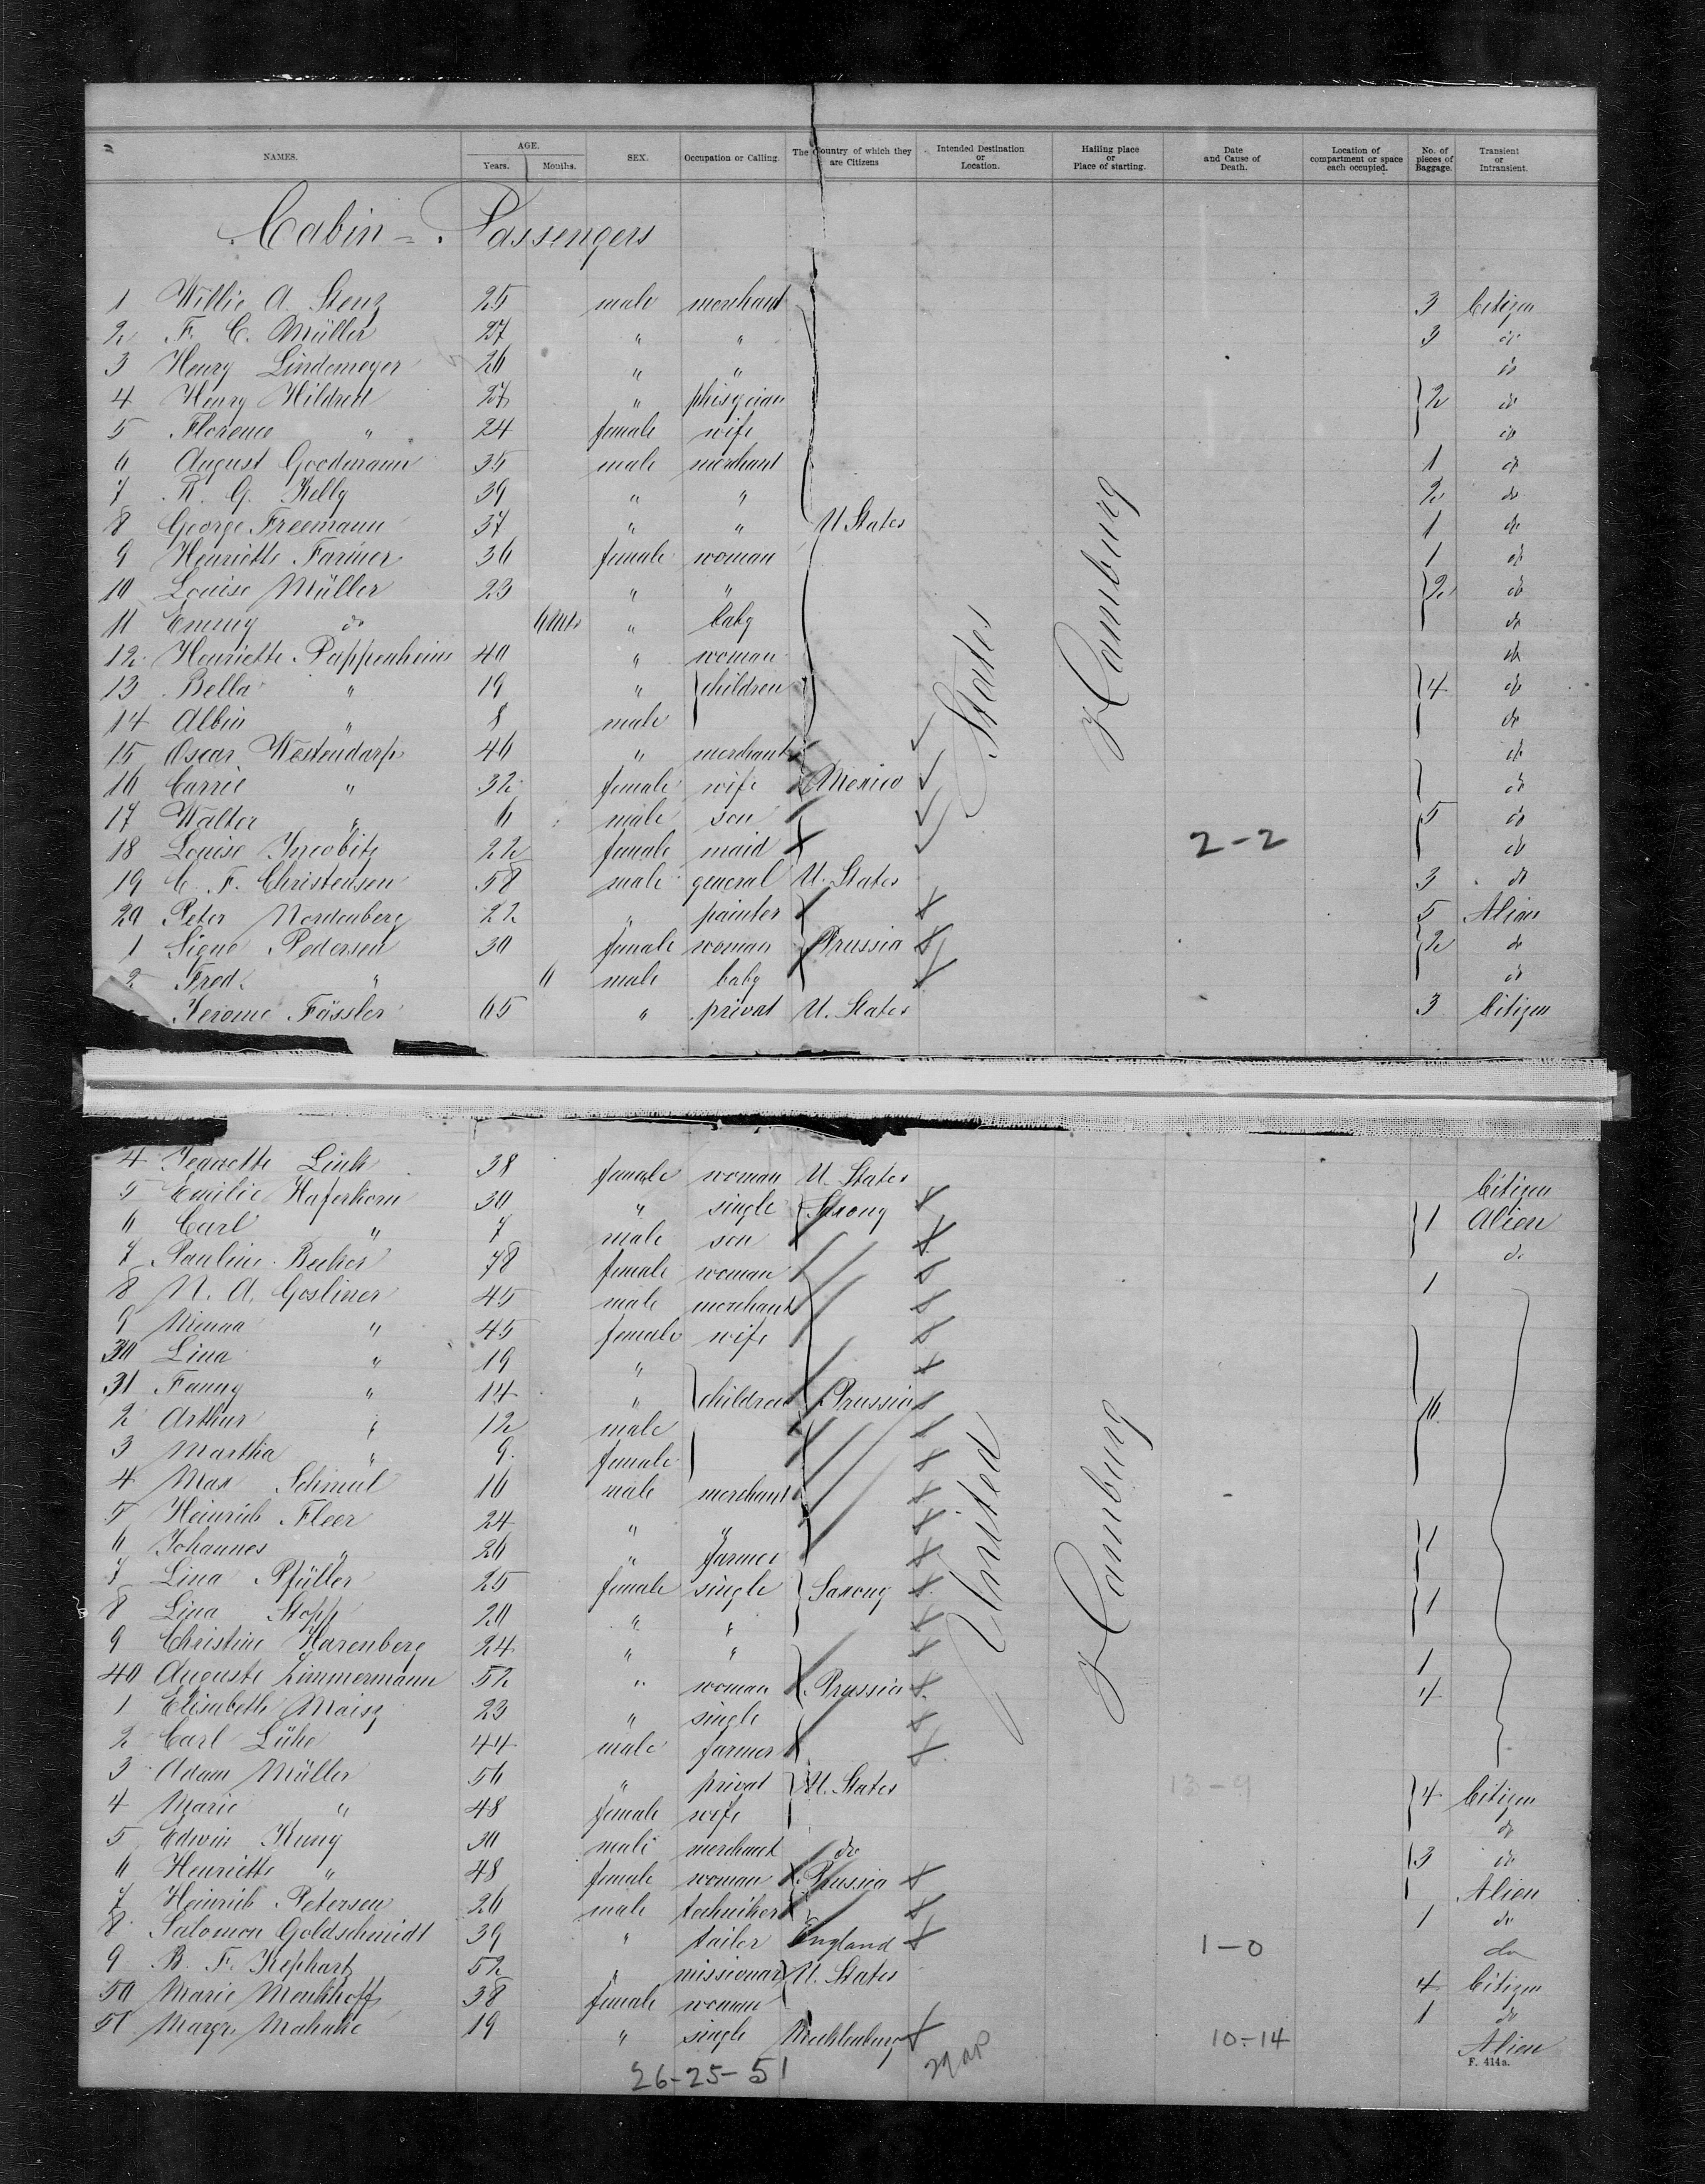 2
NAMES. AGE. Years. Months. SEX. Occupation or Calling. The Country of which they are Citizens Intended Destination or Location. Hailing place or Place of starting. Date and Cause of Death. Location of compartment or space each occupied. No. of pieces of Baggage. Transient or Intransient.
Cabin - Passengers
1 Willie A. Stenz 25 male merchant 3 Citizen
2 F. C. Müller 27 " " 3 do
3 Henry Lindemeyer 26 " " do
4 Henry Hildret 27 " phisycian 2 do
5 Florence " 24 female wife do
6 August Goodmann 35 male merchant 1 do
7 R. G. Kelly 39 " " 2 do
8 George Freemann 37 " " U States 1 do
9 Henriette Farmer 36 female woman 1 do
10 Louise Müller 23 " " 2 do
11 Emmy do 6 Mts " baby do
12 Henriette Pappenheim 40 " woman do
13 Bella " 19 " children 4 do
14 Albin " 8 male do
15 Oscar Westendarp 46 " merchant do
16 Carrie " 32 female wife Mexico do
17 Walter " 6 male son 5 do
18 Louise 22 female maid 2-2 do
19 C. F. Christensen 58 male general U. States 3 do
20 Peter Nordenberg 22 " painter 5 Alien
1 Signe Pedersen 30 female woman Prussia 2 do
2 Fred. " 11 male baby do
Jerome Fässler 65 " privat U. States 3 Citizen
States
Hamburg
4 Jeanette Link 38 female woman U. States Citizen
5 Emilie Haferkorn 30 " single Saxony 1 Alien
6 Carl " 7 male son do
7 Pauline Becker 78 female woman 1
8 N. A. Gosliner 45 male merchant
9 Minna " 45 female wife
30 Lina " 19 "
31 Fanny " 14 " children Prussia
2 Arthur " 12 male 16
3 Martha " 9 female
4 Max Schmul 16 male merchant
5 Heinrich Fleer 24 " "
6 Johannes " 26 " farmer 1
7 Lina Pfüller 25 female single Saxony
8 Lina Stopp 20 " " 1
9 Christine Harenberg 24 " "
40 Auguste Zimmermann 52 " woman Prussia 1
1 Elisabeth Maisz 23 " single 4
2 Carl Lühr 44 male farmer
3 Adam Müller 56 " privat U. States 13-9 4 Citizen
4 Marie " 48 female wife do
5 Edwin Kuny 30 male merchant do 3 do
6 Henriette " 48 female woman Prussia Alien
7 Heinrich Petersen 26 male techniker 1 do
8 Salomon Goldschmidt 39 " tailor England 1-0 do
9 B. F. Kephart 52 " missionar U. States 4 Citizen
50 Marie Menkhoff 38 female woman 1 do
51 Margr. Mahnke 19 " single Mecklenburg 10-14 Alien
United
Hamburg
26-25-51
F. 414a.